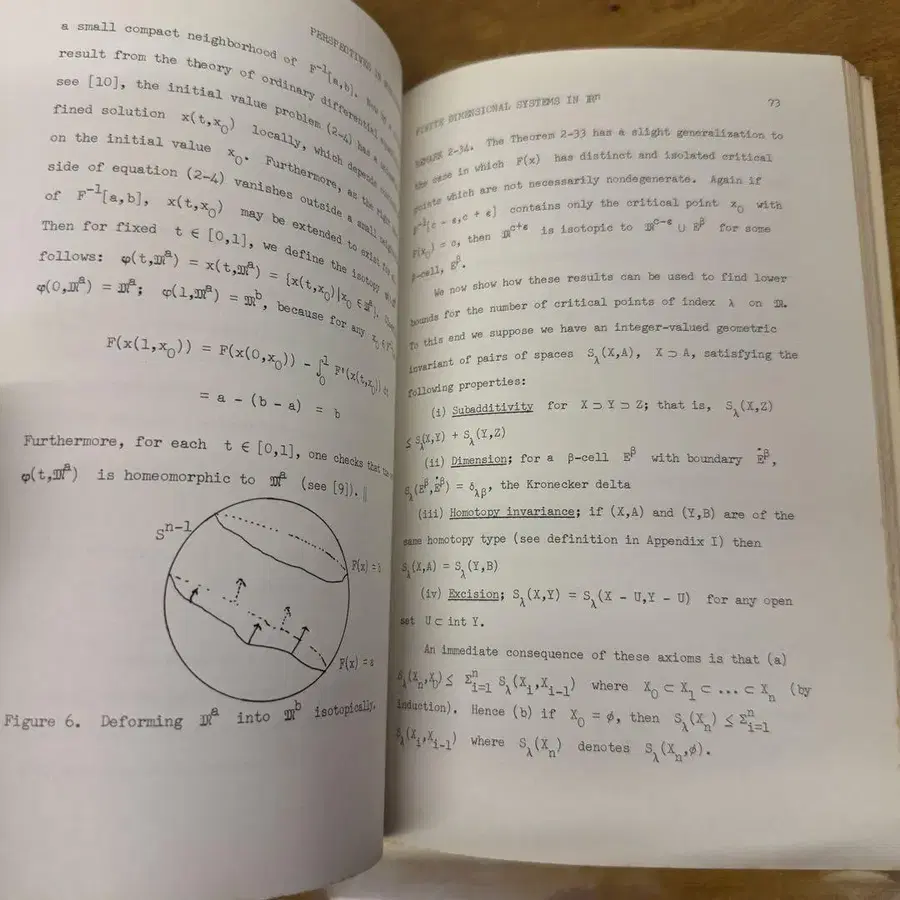 PERSPECTIVES IN
a small compact neighborhood of F⁻¹[a,b]. Now by a
result from the theory of ordinary differential
see [10], the initial value problem (2-4) has a
fined solution x(t,x₀) locally, which depends
on the initial value x₀. Furthermore, as the right
side of equation (2-4) vanishes outside a small
of F⁻¹[a,b], x(t,x₀) may be extended to exist for
Then for fixed t ∈ [0,1], we define the isotopy
follows: φ(t,𝔐ᵃ) = x(t,𝔐ᵃ) = {x(t,x₀)|x₀ ∈ 𝔐ᵃ}.
φ(0,𝔐ᵃ) = 𝔐ᵃ; φ(1,𝔐ᵃ) = 𝔐ᵇ, because for any
F(x(1,x₀)) = F(x(0,x₀)) - ∫₀¹ F'(x(t,x₀)) dt
= a - (b - a) = b
Furthermore, for each t ∈ [0,1], one checks that
φ(t,𝔐ᵃ) is homeomorphic to 𝔐ᵃ (see [9]). ||
Sⁿ⁻¹
F(x) =
F(x) = a
Figure 6. Deforming 𝔐ᵃ into 𝔐ᵇ isotopically.
FINITE DIMENSIONAL SYSTEMS IN ℝⁿ 73
REMARK 2-34. The Theorem 2-33 has a slight generalization to
the case in which F(x) has distinct and isolated critical
points which are not necessarily nondegenerate. Again if
F⁻¹[c - ε,c + ε] contains only the critical point x₀ with
F(x₀) = c, then 𝔐ᶜ⁺ᵋ is isotopic to 𝔐ᶜ⁻ᵋ ∪ Eᵝ for some
β-cell, Eᵝ.
We now show how these results can be used to find lower
bounds for the number of critical points of index λ on 𝔐.
To this end we suppose we have an integer-valued geometric
invariant of pairs of spaces S_λ(X,A), X ⊃ A, satisfying the
following properties:
(i) Subadditivity for X ⊃ Y ⊃ Z; that is, S_λ(X,Z)
≤ S_λ(X,Y) + S_λ(Y,Z)
(ii) Dimension; for a β-cell Eᵝ with boundary Ėᵝ,
S_λ(Eᵝ,Ėᵝ) = δ_λβ, the Kronecker delta
(iii) Homotopy invariance; if (X,A) and (Y,B) are of the
same homotopy type (see definition in Appendix I) then
S_λ(X,A) = S_λ(Y,B)
(iv) Excision; S_λ(X,Y) = S_λ(X - U,Y - U) for any open
set U ⊂ int Y.
An immediate consequence of these axioms is that (a)
S_λ(Xₙ,X₀) ≤ Σⁿᵢ₌₁ S_λ(Xᵢ,Xᵢ₋₁) where X₀ ⊂ X₁ ⊂ ... ⊂ Xₙ (by
induction). Hence (b) if X₀ = ∅, then S_λ(Xₙ) ≤ Σⁿᵢ₌₁
S_λ(Xᵢ,Xᵢ₋₁) where S_λ(Xₙ) denotes S_λ(Xₙ,∅).